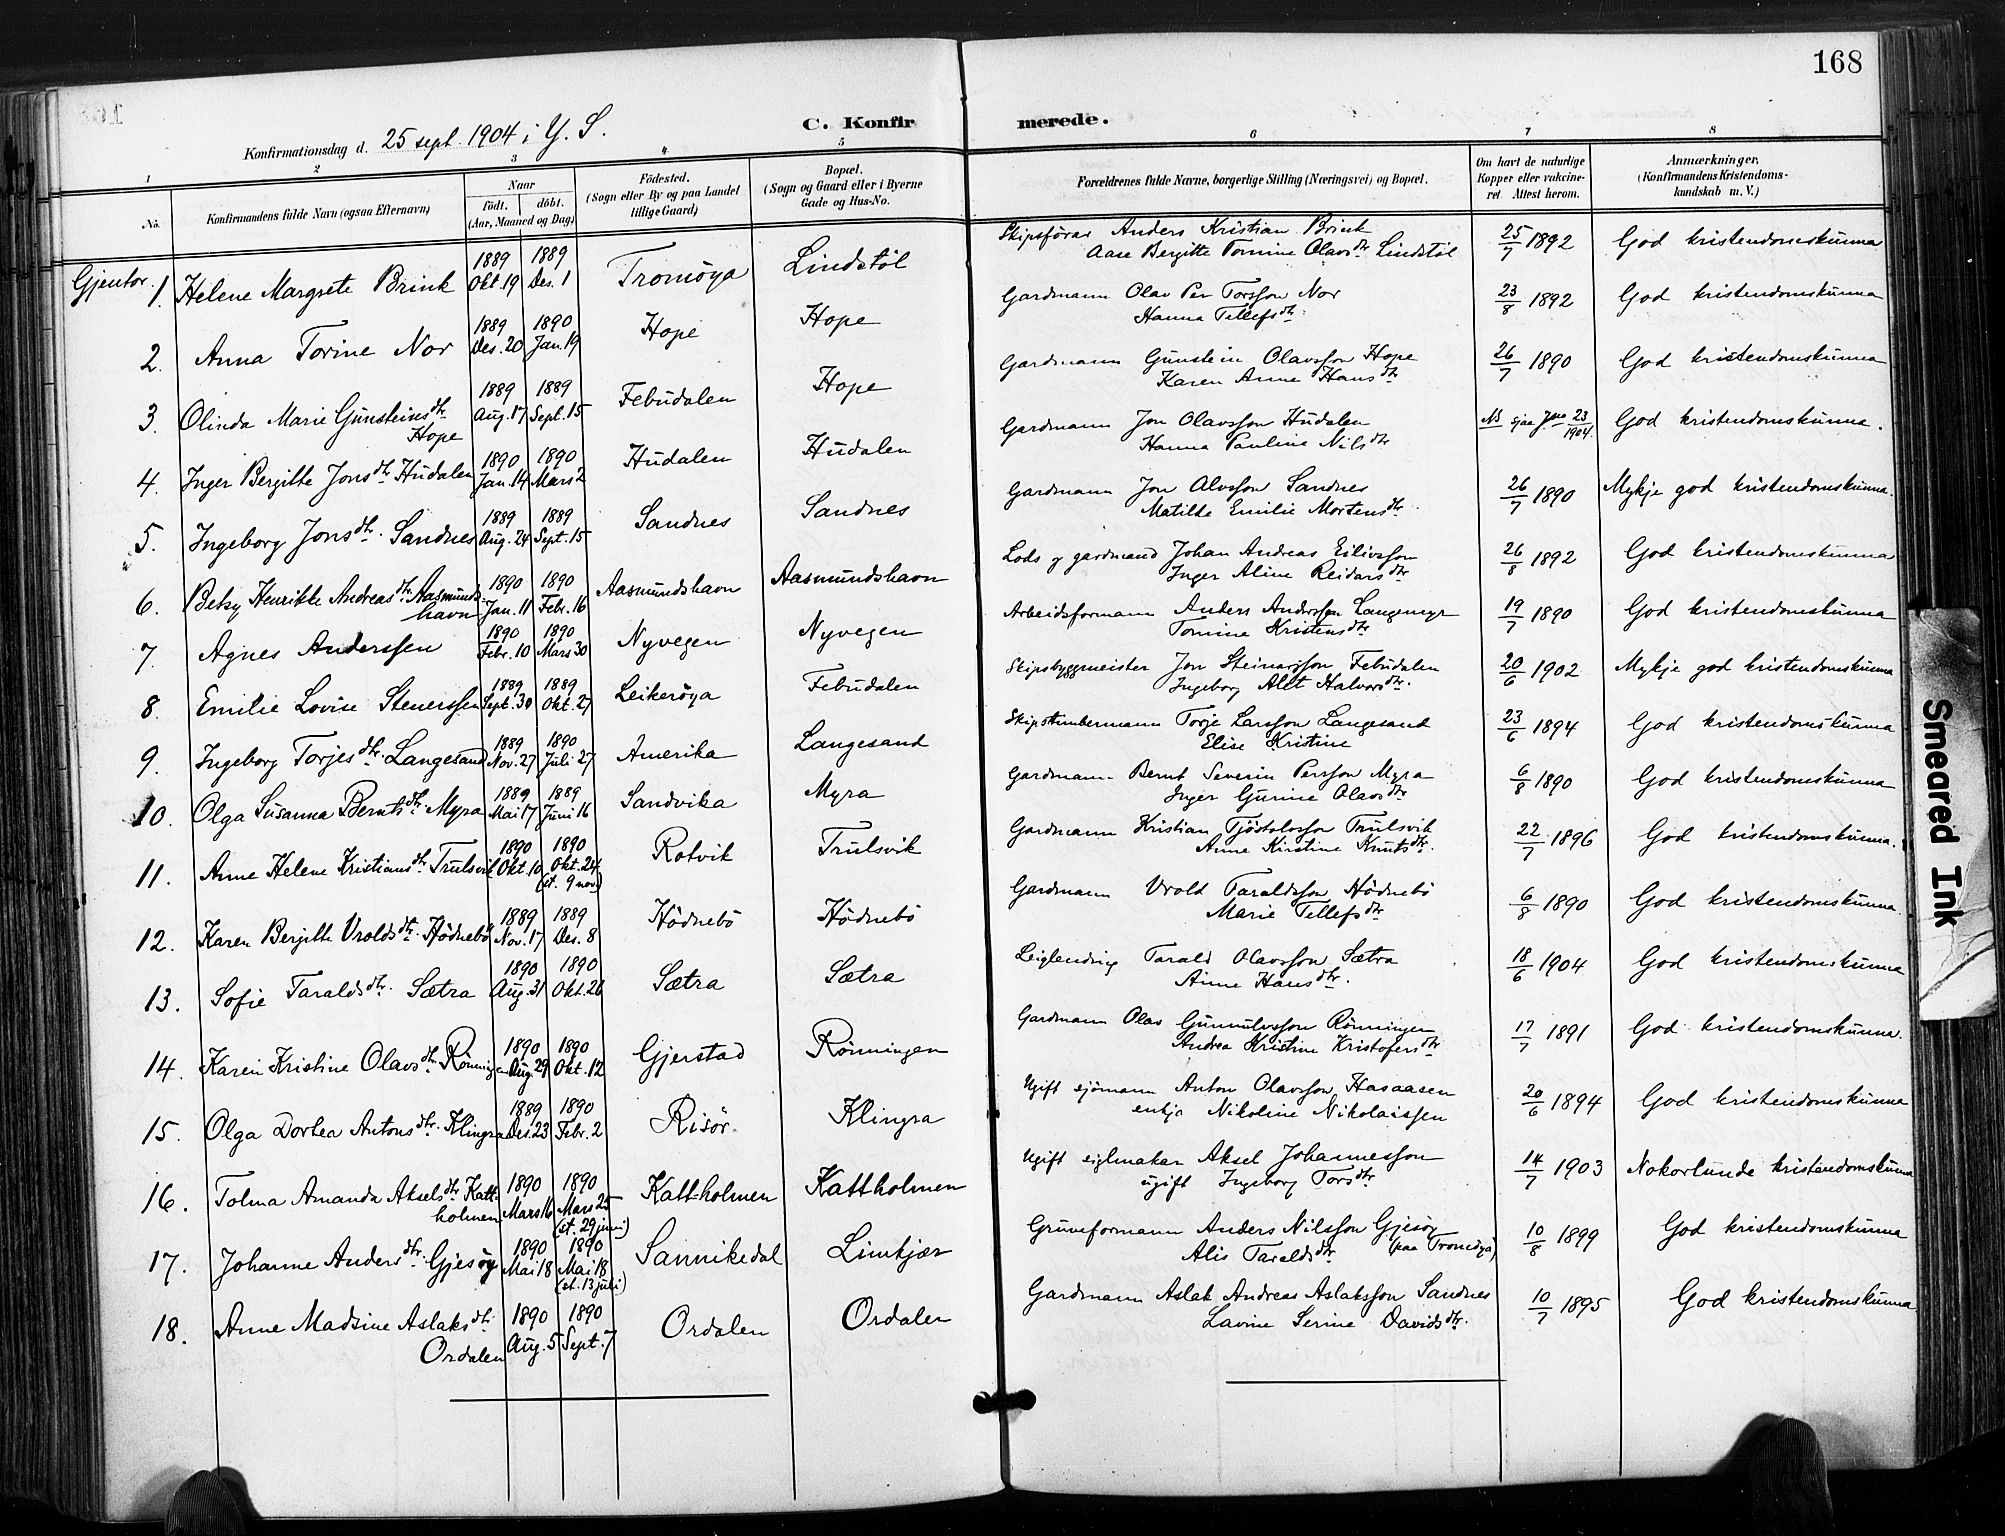 168
C. Konfirmerede.
Konfirmationsdag d. 25 sept. 1904 i Y. S.
1 2 3 4 5 6 7 8
No.
Konfirmandens fulde Navn (ogsaa Efternavn)
Naar
født. døbt.
(Aar, Maaned og Dag)
Fødested.
(Sogn eller By og paa Landet
tillige Gaard)
Bopæl.
(Sogn og Gaard eller i Byerne
Gade og Hus-No.
Forældrenes fulde Navne, borgerlige Stilling (Næringsvei) og Bopæl.
Om havt de naturlige
Kopper eller vakcine-
ret Attest herom.
Anmærkninger.
(Konfirmandens Kristendoms-
kundskab m. V.)
Gjentor.
1. Helene Margrete Brink 1889 Okt. 19 1889 Des. 1 Tromöya Lindstöl Skipsförar Anders Kristian Brink 25/7 1892 God kristendomskunna
Aase Bergitte Tomine Olavsdtr. Lindstöl
2. Anna Torine Nor 1889 Des. 20 1890 Jan. 19 Hope Hope Gardmann Olav Per Torsson Nor 23/8 1892 God kristendomskunna
Hanna Tellefsdtr.
3. Olinda Marie Gunsteinsdtr. 1889 Aug. 17 1889 Sept. 15 Febudalen Hope Gardmann Gunstein Olavsson Hope 26/7 1890 God kristendomskunna
Hope Karen Anne Hansdtr
4. Inger Bergitte Jonsdtr. Hudalen 1890 Jan. 14 1890 Mars 2 Hudalen Hudalen Gardmann Jon Olavsson Hudalen 23/1904. God kristendomskunna.
Hanna Pauline Nilsdtr
5. Ingeborg Jonsdtr. Sandnes 1889 Aug. 24 1889 Sept. 15 Sandnes Sandnes Gardmann Jon Alvsson Sandnes 26/7 1890 Mykje god kristendomskunna.
Matilde Emilie Mortensdtr.
6. Betsy Henrikke Andreasdtr. Aasmunds- 1890 Jan. 11 1890 Febr. 16 Aasmundshavn Aasmundshavn Lods og gardmand Johan Andreas Eilivsson 26/8 1892 God kristendomskunna
havn Inger Aline Reidarsdtr
7. Agnes Anderssen 1890 Febr. 10 1890 Mars 30 Nyvegen Nyvegen Arbeidsformann Anders Andersson Langemyr 19/7 1890 God kristendomskunna
Tomine Kristensdtr
8. Emilie Lovise Stenerssen 1889 Sept. 30 1889 Okt. 27 Leikeröya Febudalen Skipsbyggmeister Jon Steinarsson Febudalen 20/6 1902 Mykje god kristendomskunna
Ingeborg Alet Halvorsdtr.
9. Ingeborg Torjesdtr. Langesand 1889 Nov. 27 1890 Juli 27 Amerika Langesand Skipstimbermann Torje Larsson Langesand 23/6 1894 God kristendomskunna
Elise Kristine
10. Olga Susanna Berntsdtr. Myra 1889 Mai 17 1889 Juni 16 Sandvika Myra Gardmann Bernt Severin Persson Myra 6/8 1890 God kristendomskunna
Inger Gurine Olavsdtr
11. Anne Helene Kristiansdtr. Trulsvik 1890 Okt. 10 1890 Okt. 24 Rotvik Trulsvik Gardmann Kristian Tjöstolvsson Trulsvik 22/7 1896 God kristendomskunna.
(st. 9 nov.) Anne Kirstine Knutsdtr.
12. Karen Bergitte Vroldsdtr. Hödnebö 1889 Nov. 17 1889 Des. 8 Hödnebö Hödnebö Gardmann Vrold Taraldsson Hödnebö 6/8 1890 God kristendomskunna.
Marie Tellefsdtr
13. Sofie Taraldsdtr. Sætra 1890 Aug. 31 1890 Okt. 26 Sætra Sætra Leiglending Tarald Olavsson Sætra 18/6 1904 God kristendomskunna
Anne Hansdtr.
14. Karen Kristine Olavsdtr. Rönningen 1890 Aug. 29 1890 Okt. 12 Gjerstad Rönningen Gardmann Olav Gunnulvsson Rönningen 17/7 1891 God kristendomskunna.
Andrea Kristine Kristofersdtr
15. Olga Dortea Antonsdtr. Klingra 1889 Des. 23 1890 Febr. 2 Risör. Klingra Ugift sjömann Anton Olavsson Hasaasen 20/6 1894 God kristendomskunna
enkje Nikoline Nikolaissen
16. Tolma Amanda Akselsdtr. Katt- 1890 Mars 16 1890 Mars 25 Kattholmen Kattholmen Ugift siglmakar Aksel Johannesson 14/7 1903 Nokorlunde kristendomskunna
holmen (st. 29 juni) ugift Ingeborg Torsdtr
17. Johanne Andersdtr. Gjesöy 1890 Mai 18 1890 Mai 18 Sannikedal Limkjær Gruveformann Anders Nilsson Gjesöy 10/8 1899 God kristendomskunna
(st. 13 juli) Alis Taraldsdtr. (paa Tromöya)
18. Anne Madsine Aslaksdtr. 1890 Aug. 5 1890 Sept. 7 Ordalen Ordalen Gardmann Aslak Andreas Aslaksson Sandnes 10/7 1895 God kristendomskunna
Ordalen Lavine Serine Davidsdtr.
Smeared Ink